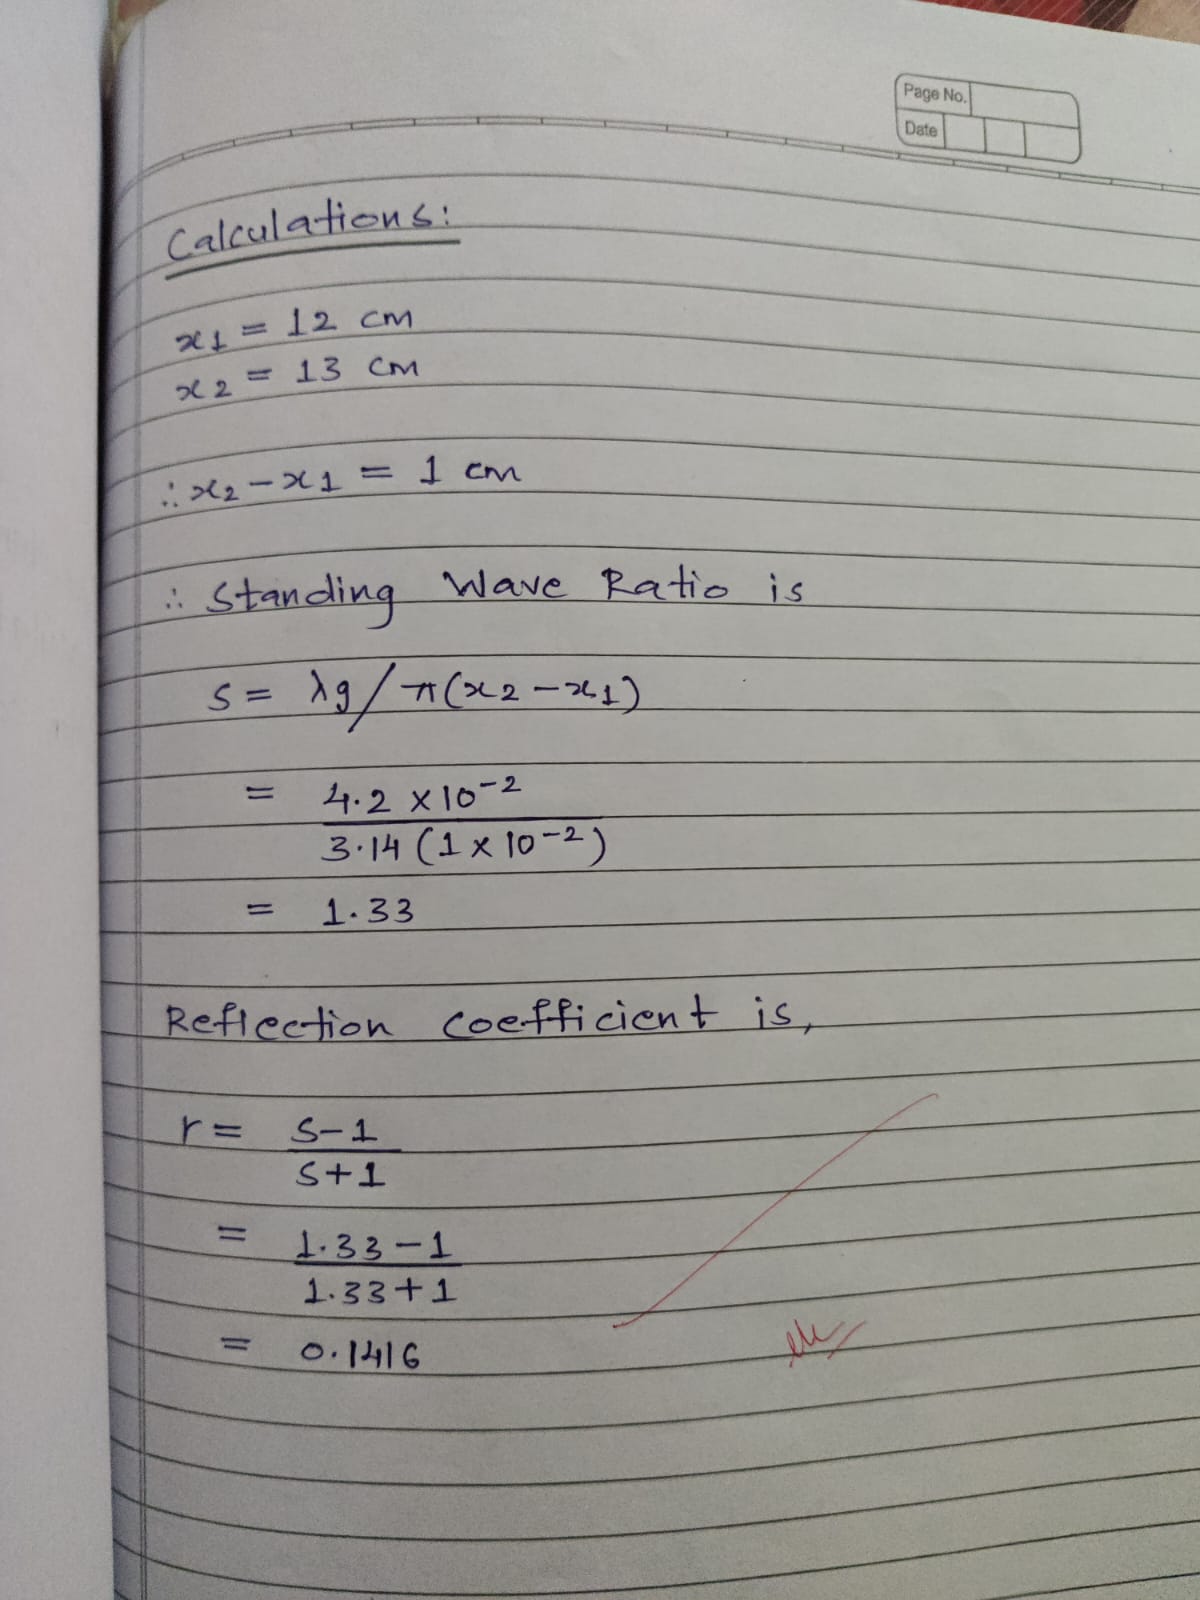 Page No.
Date
Calculations:
x1 = 12 cm
x2 = 13 cm
∴ x2 - x1 = 1 cm
∴ Standing Wave Ratio is
S = λg / π(x2 - x1)
= 4.2 x 10^-2
3.14 (1 x 10^-2)
= 1.33
Reflection coefficient is,
r = S-1
S+1
= 1.33 - 1
1.33 + 1
= 0.1416